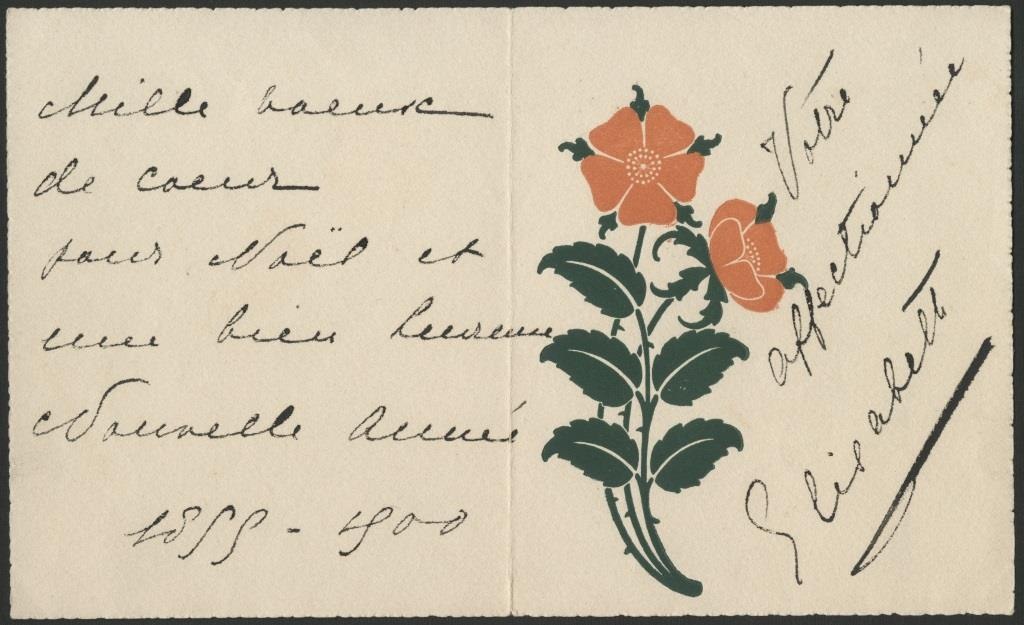 Mille voeux
de coeur
pour Noël et
une bien heureuse
Nouvelle Année
1899 - 1900
Votre
affectionnée
Elisabeth